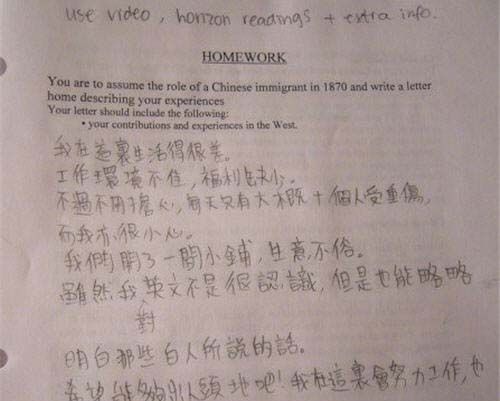 use video, horizon readings + extra info.
HOMEWORK
You are to assume the role of a Chinese immigrant in 1870 and write a letter
home describing your experiences
Your letter should include the following:
• your contributions and experiences in the West.
我在這裏生活得很差。
工作環境不佳，福利缺少。
不過不用擔心，每天只有大概十個人受重傷，
而我亦很小心。
我們開了一間小鋪，生意不俗。
雖然我英文不是很認識，但是也能略略
對
明白那些白人所說的話。
希望能夠人頭地吧！我在這裏會努力工作，也